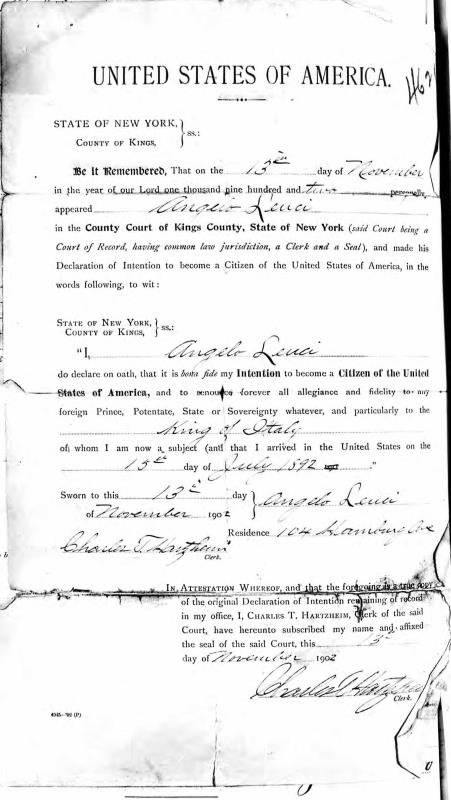 UNITED STATES OF AMERICA.
462
STATE OF NEW YORK,
COUNTY OF KINGS,
ss.:
Be it Remembered, That on the 13th day of November
in the year of our Lord one thousand nine hundred and two personally
appeared Angelo Leuci
in the County Court of Kings County, State of New York (said Court being a
Court of Record, having common law jurisdiction, a Clerk and a Seal), and made his
Declaration of Intention to become a Citizen of the United States of America, in the
words following, to wit:
STATE OF NEW YORK,
COUNTY OF KINGS,
ss.:
"I, Angelo Leuci
do declare on oath, that it is bona fide my Intention to become a Citizen of the United
States of America, and to renounce forever all allegiance and fidelity to any
foreign Prince, Potentate, State or Sovereignty whatever, and particularly to the
King of Italy
of whom I am now a subject (and that I arrived in the United States on the
15th day of July 1892 ."
Sworn to this 13th day
of November 1902
Angelo Leuci
Residence 104 Hamburg Ave
Charles T. Hartzheim
Clerk.
IN ATTESTATION WHEREOF, and that the foregoing is a true copy
of the original Declaration of Intention remaining of record
in my office, I, CHARLES T. HARTZHEIM, Clerk of the said
Court, have hereunto subscribed my name and affixed
the seal of the said Court, this 13th
day of November 1902
Charles T. Hartzheim
Clerk.